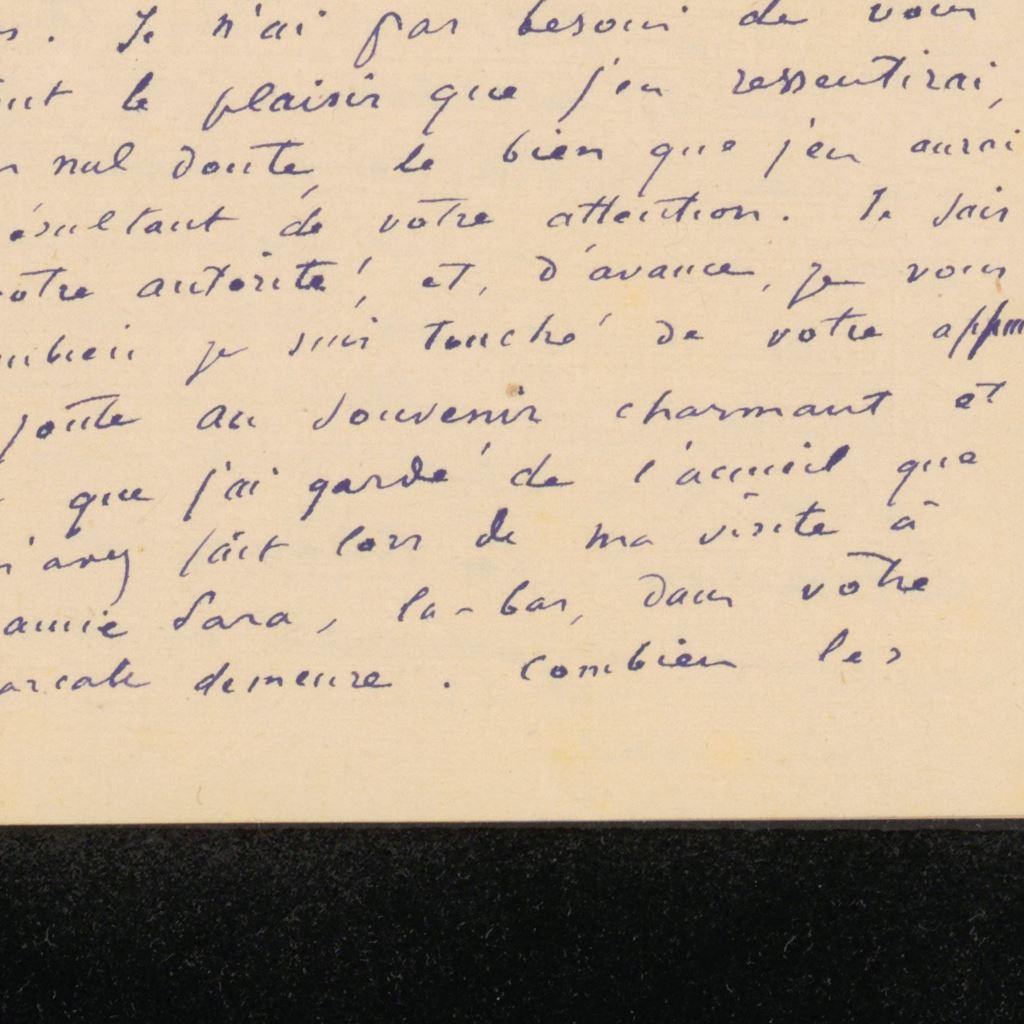 . Je n'ai pas besoin de vous
le plaisir que j'en ressentirai,
nul doute, le bien que j'en aurai
ésultant de votre attention. Je sais
otre autorité, et, d'avance, je vous
mbien je suis touché de votre appui
joute au souvenir charmant et
que j'ai gardé de l'accueil que
m'avez fait lors de ma visite à
amie Sara, là-bas, dans votre
arcale demeure. Combien les